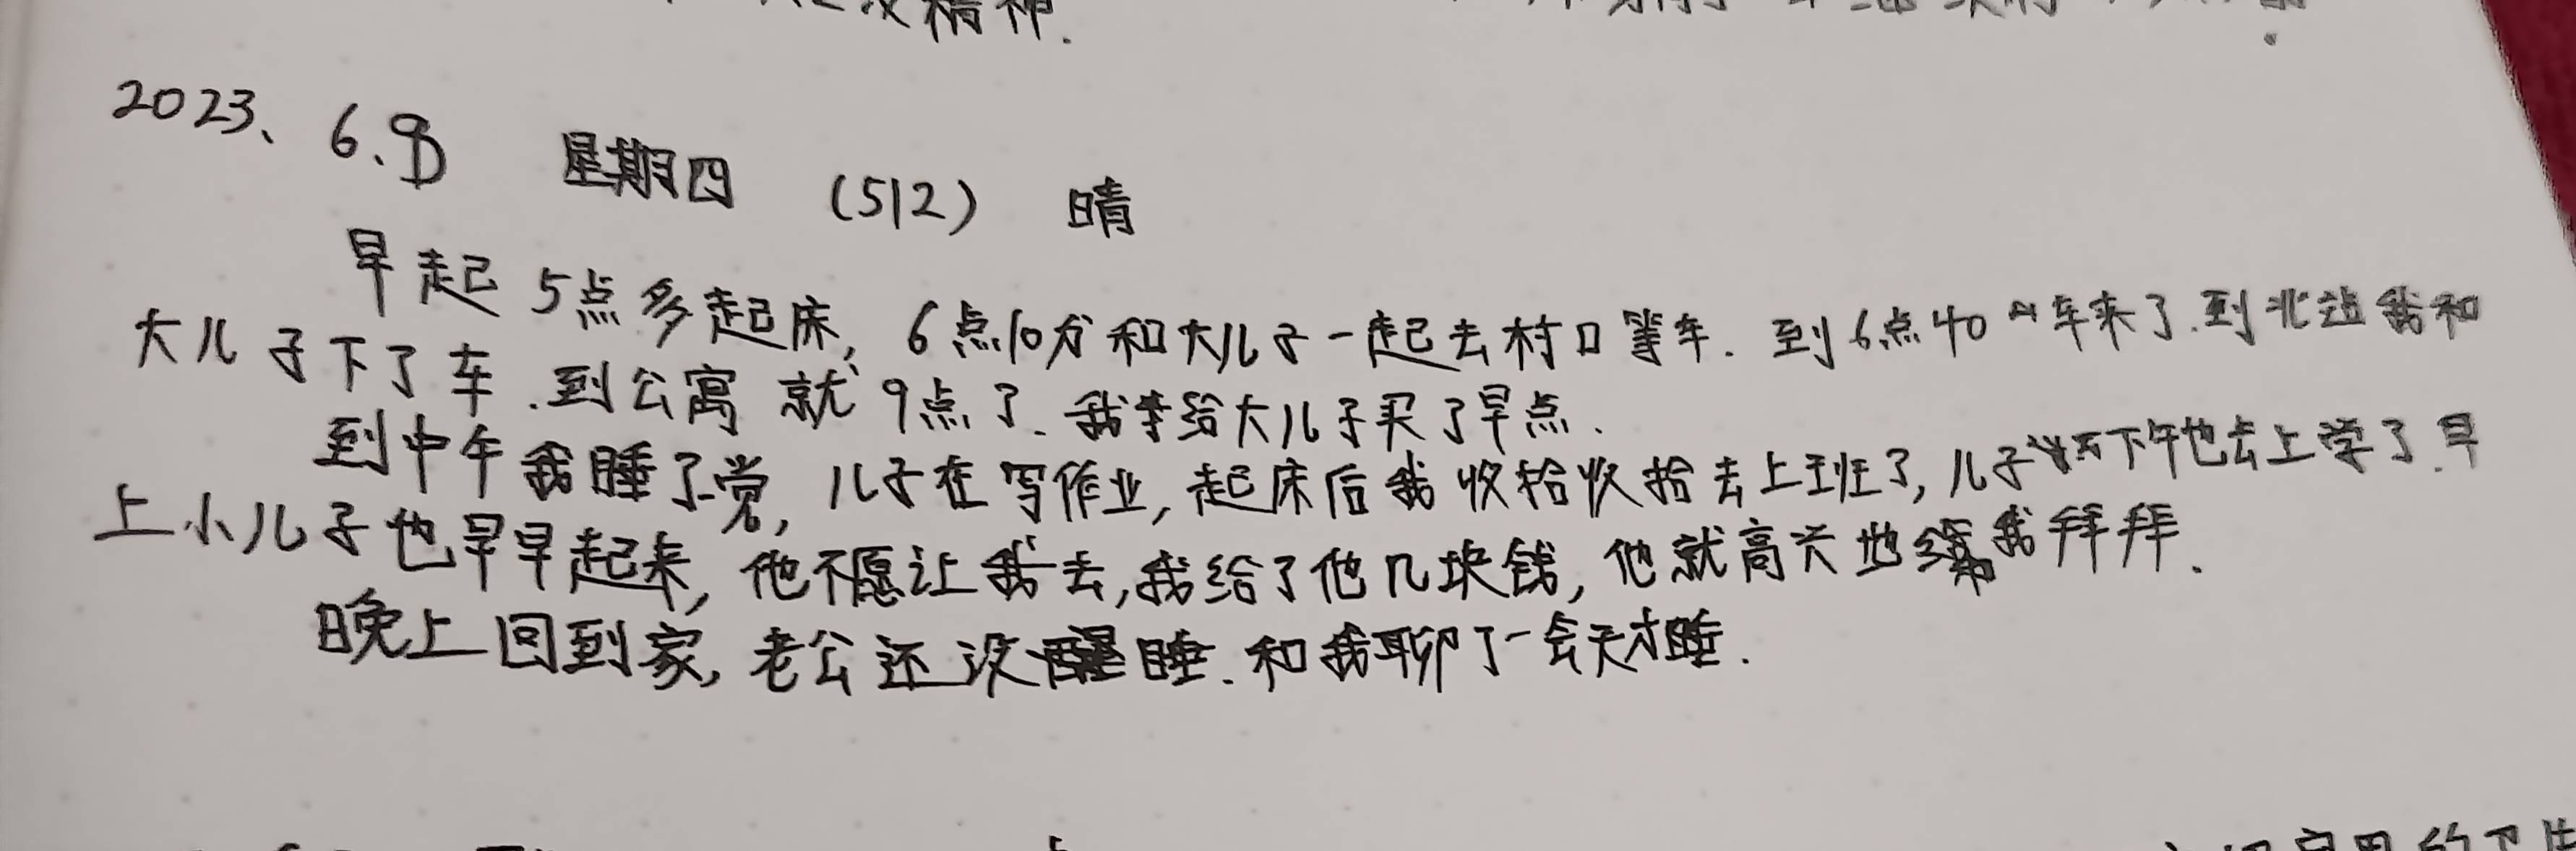 精神.
2023、6.9 星期四 (512) 晴
早起5点多起床,6点10分和大儿子一起去村口等车.到6点40车来了.到北边我和
大儿子下了车.到公寓就9点了.我给大儿子买了早点.
到中午我睡了觉,儿子在写作业,起床后我收拾收拾去上班了,儿子下午也去上学了.早
上小儿子也早早起来,他不愿让我去,我给了他几块钱,他就高兴地和我拜拜.
晚上回到家,老公还没睡.和我聊了一会天才睡.